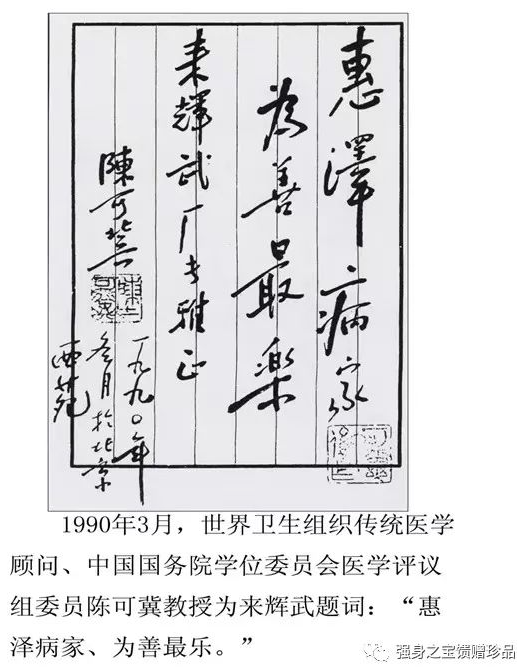 惠澤病家
為善最樂
来輝武厂长雅正
陳可冀
一九九〇年
叁月於北京
西苑
1990年3月，世界卫生组织传统医学
顾问、中国国务院学位委员会医学评议
组委员陈可冀教授为来辉武题词：“惠
泽病家、为善最乐。”
强身之宝馈赠珍品